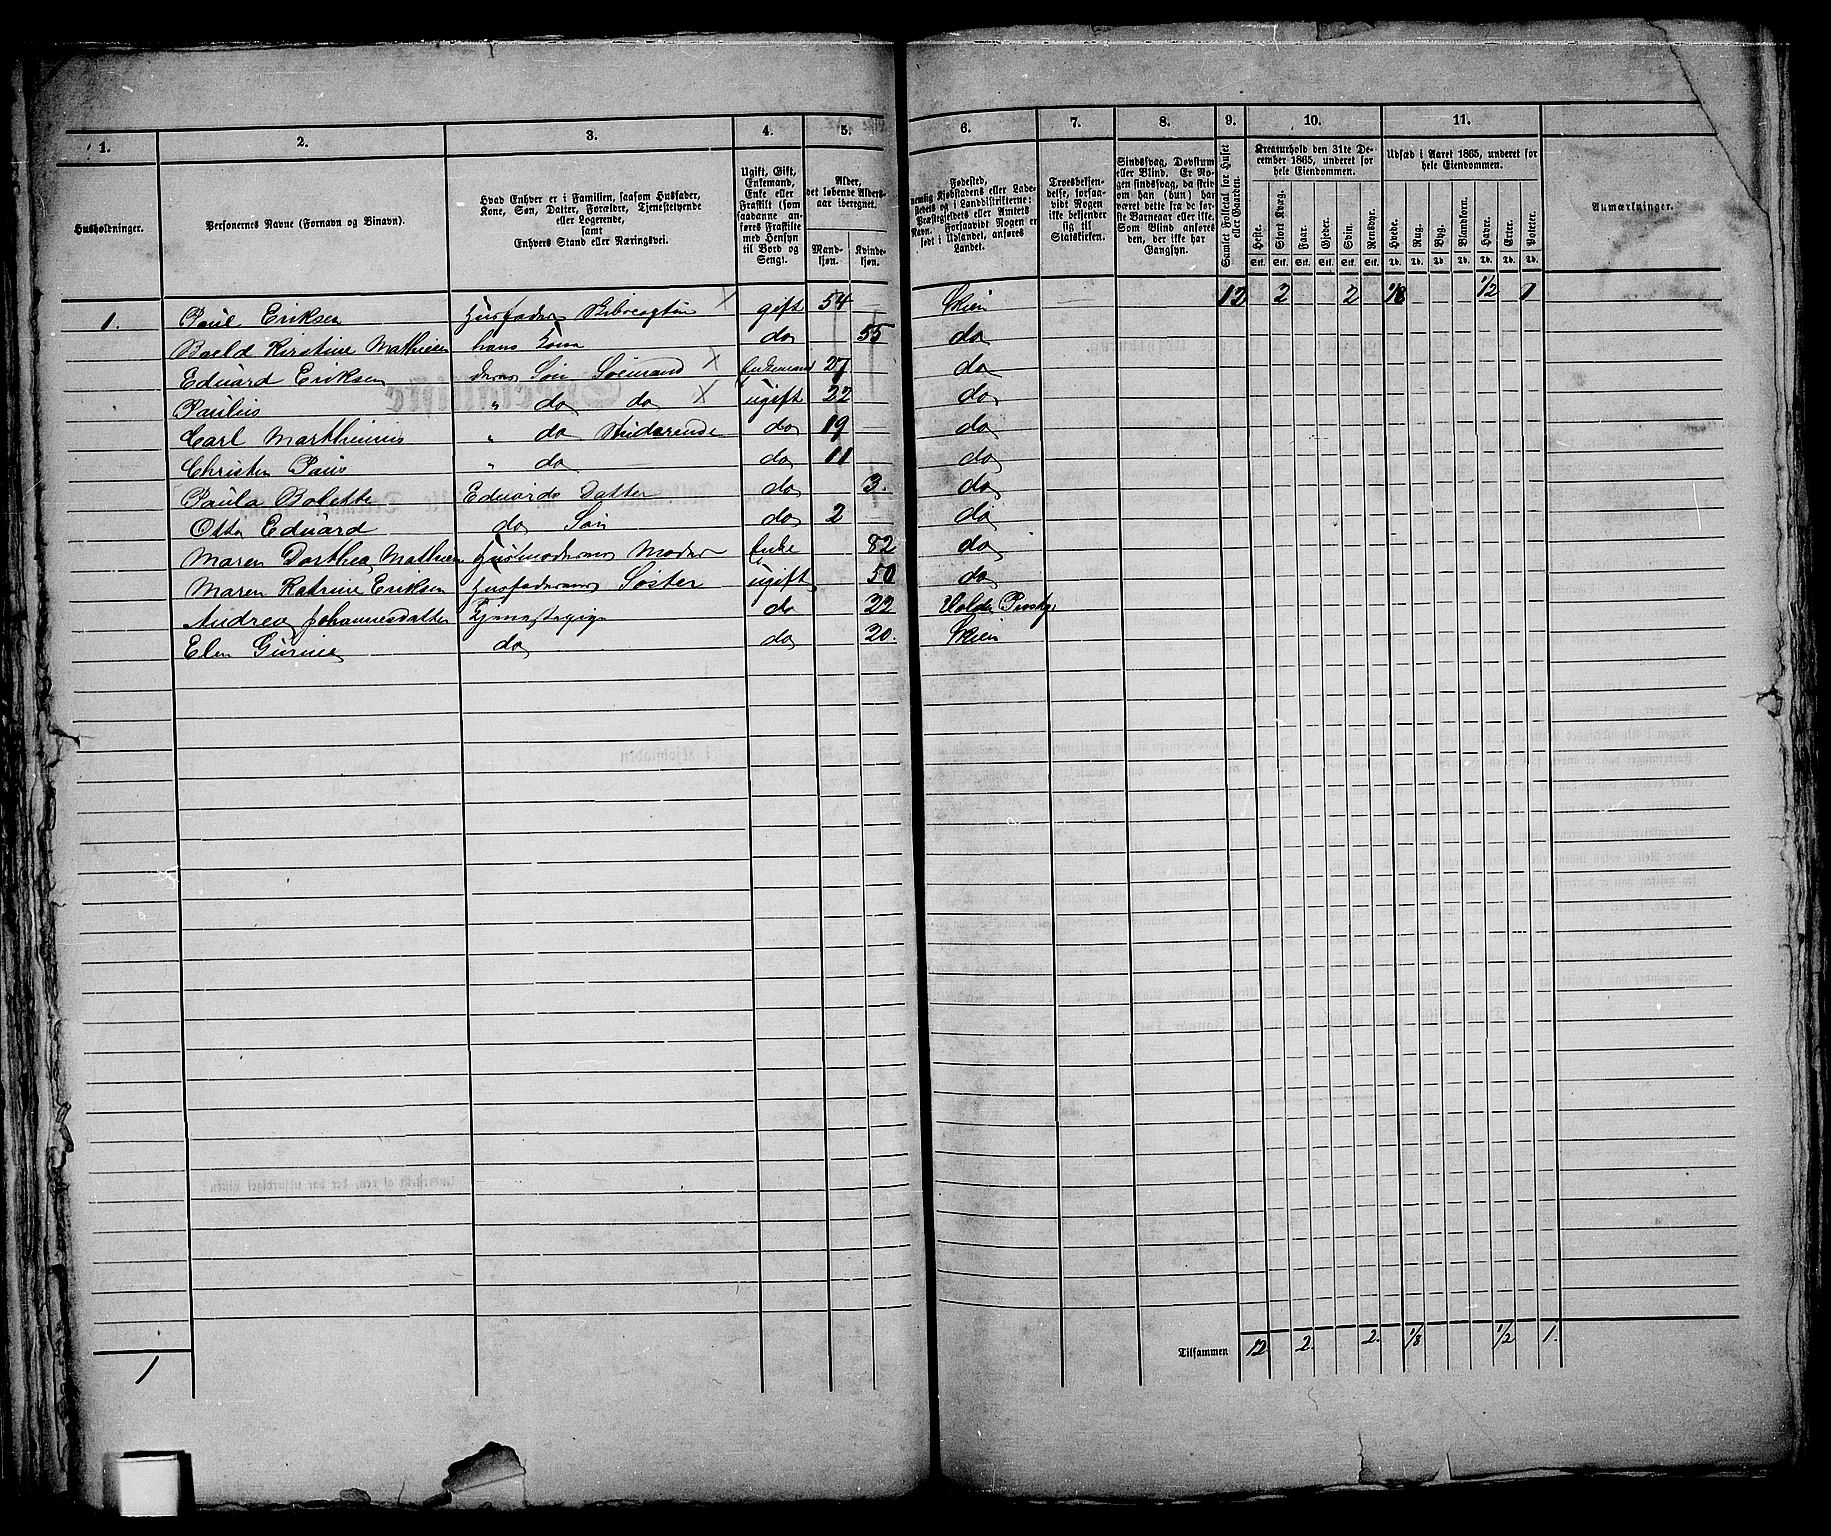 1. 2. 3. 4. 5. 6. 7. 8. 9. 10. 11.
Husholdninger.
Personernes Navne (Fornavn og Binavn).
Hvad Enhver er i Familien, saasom Husfader,
Kone, Søn, Datter, Forældre, Tjenestetyende
eller Logerende,
samt
Enhvers Stand eller Næringsvei.
Ugift, Gift,
Enkemand,
Enke eller
Fraskilt (som
saadanne an-
føres Fraskilte
med Hensyn
til Bord og
Seng).
Alder,
det løbende Alders-
aar iberegnet.
Mand-
kjøn.
Kvinde-
kjøn.
Fødested,
nemlig Kjøbstadens eller Lade-
stedets og i Landdistrikterne:
Præstegjeldets eller Amtets
Navn. Forsaavidt Nogen er
født i Udlandet, anføres
Landet.
Troesbekjen-
delse, forsaa-
vidt Nogen
ikke bekjender
sig til
Statskirken.
Sindssvag, Døvstum
eller Blind. Er No-
gen sindssvag, da skriv
om han (hun) har
været dette fra de før-
ste Barneaar eller ikke.
Som Blind anføres
den, der ikke har
Gangsyn.
Samlet Folketal for Huset
eller Gaarden.
Kreaturhold den 31te De-
cember 1865, underet for
hele Eiendommen.
Heste. Stort Kvæg. Faar. Gjeder. Svin. Rensdyr.
Stk. Stk. Stk. Stk. Stk. Stk.
Udsæd i Aaret 1865, underet for
hele Eiendommen.
Hvede. Rug. Byg. Blandkorn. Havre. Erter. Poteter.
Td. Td. Td. Td. Td. Td. Td.
Anmærkninger.
1. Paul Eriksen Husfader gift 54 Skien 12 2 2 1/8 1/2 1
Boeld Kirstine Mathiesen hans Kone do 55 do
Eduard Eriksen deres Søn Sömand Enkemand 27 do
Paulus " do do ugift 22 do
Carl Marthinius " do Studerende do 19 do
Christen Paus " do do 11 do
Paula Bolette Eduards Datter do 3. do
Otto Eduard do Søn do 2 do
Maren Dorthea Mathisen Husmoderens Moder Enke 82 do
Maren Katrine Eriksen Husfaderens Søster ugift 50 do
Andrea Johannesdatter Tjenestepige do 22 Holden Præstgj
Elen Gurine do do 20. Skien
Tilsammen 12. 2. 2. 1/8 1/2 1.
1